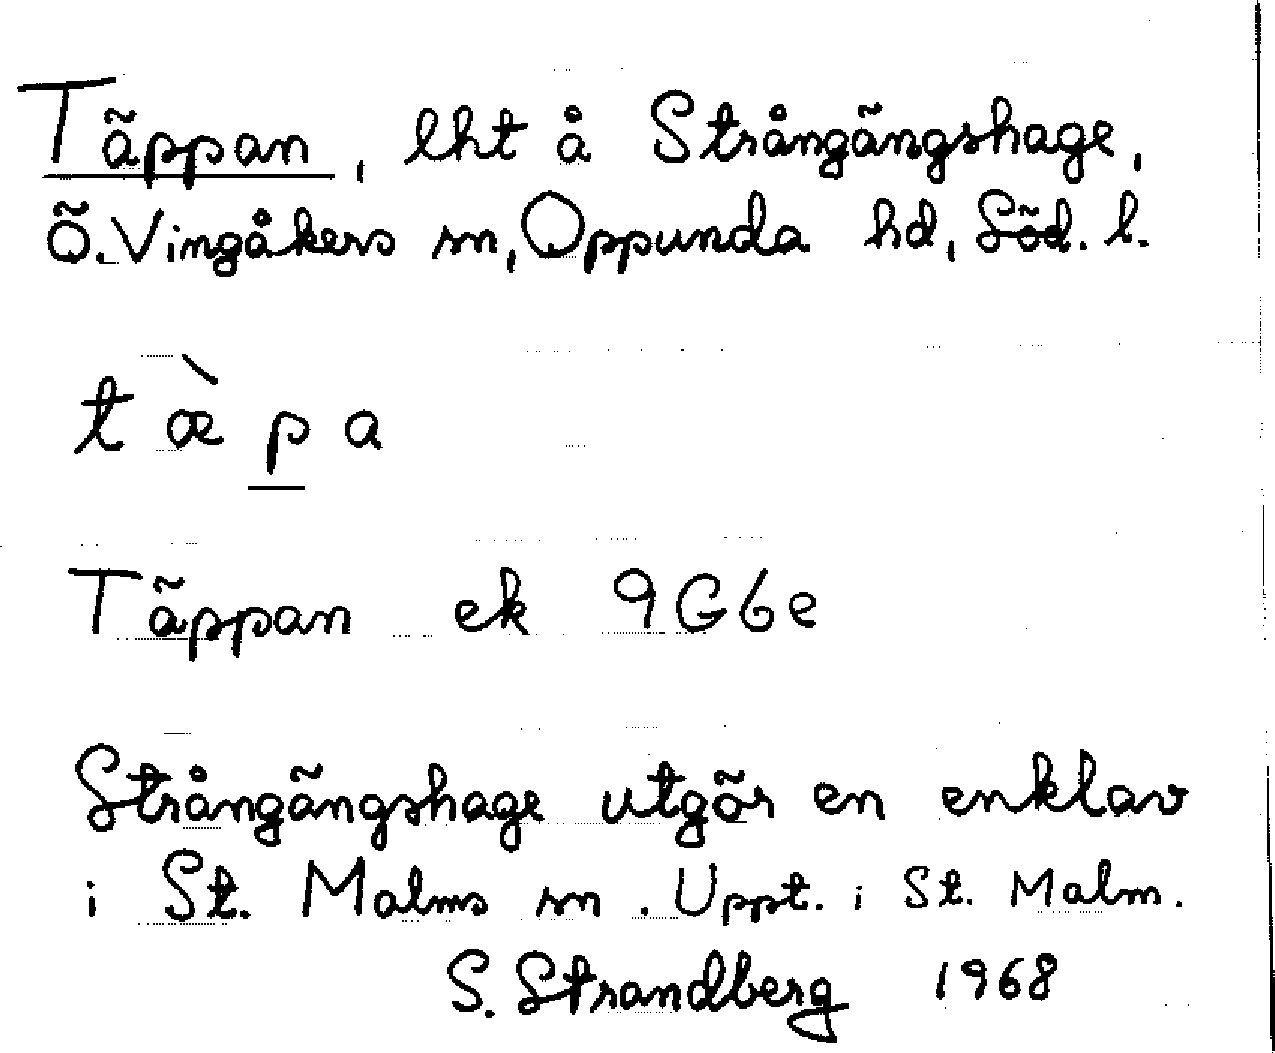 Täppan, lht å Strångängshage,
Ö. Vingåkers sn, Oppunda hd, Söd. l.
tæ̀pa
Täppan ek 9G6e
Strångängshage utgör en enklav
i St. Malms sn. Uppt. i St. Malm.
S. Strandberg 1968